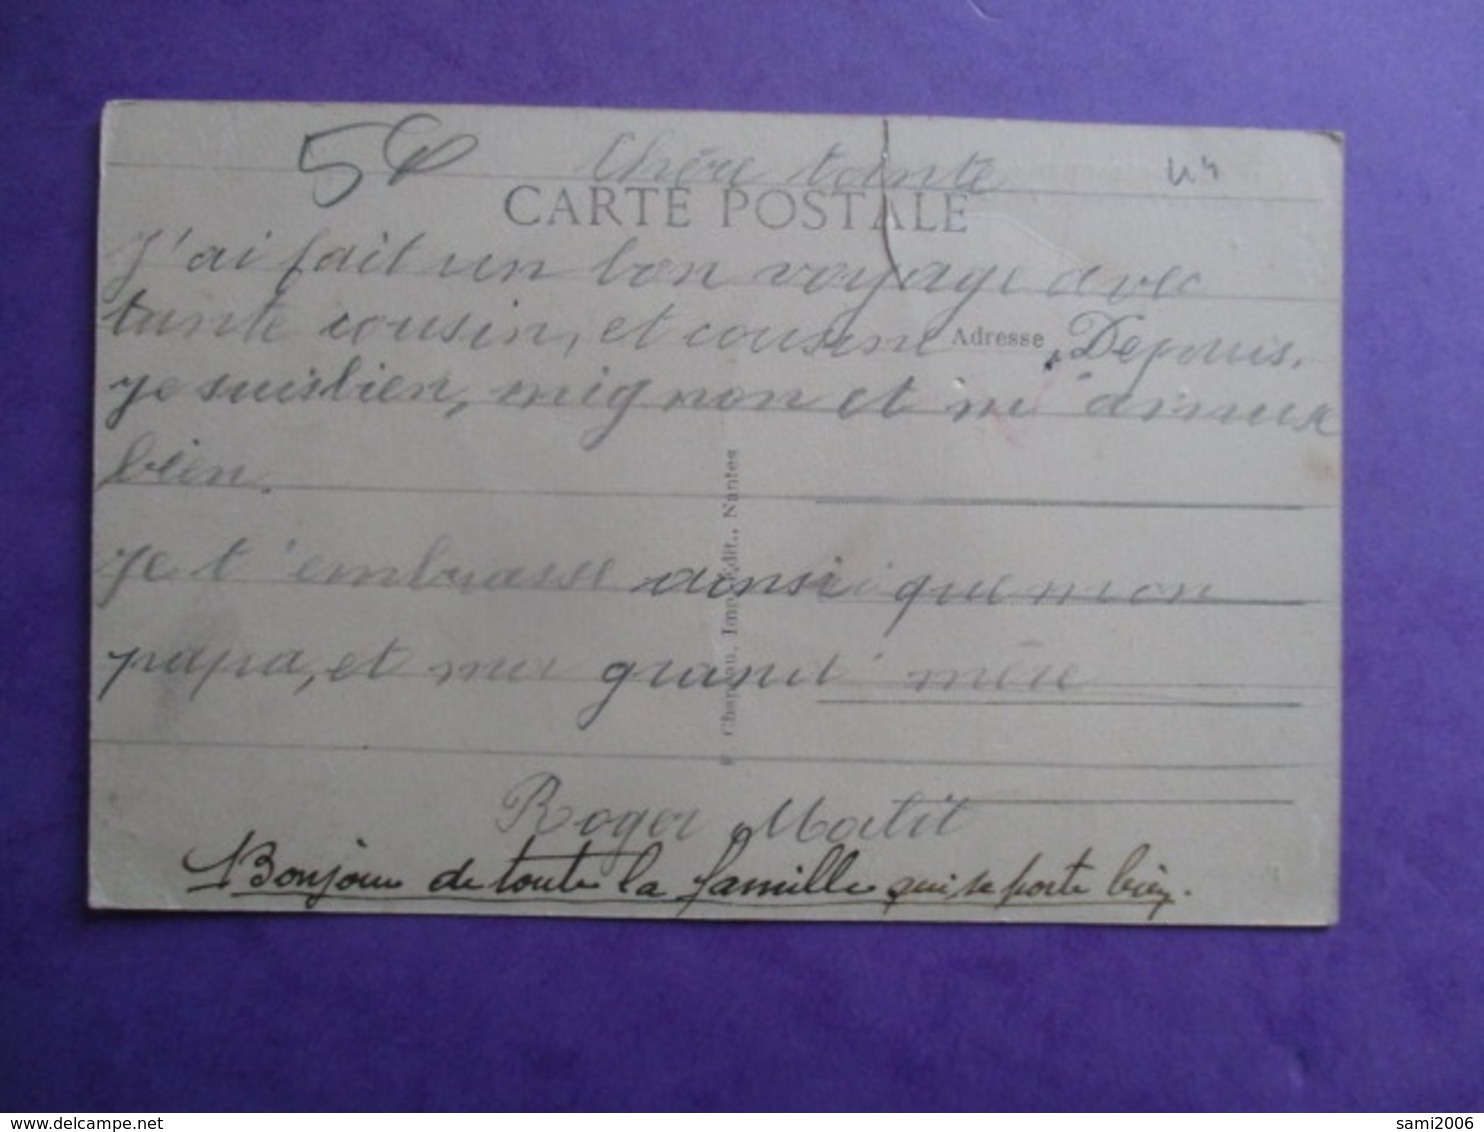 5
44
Chère tante
CARTE POSTALE
J'ai fait un bon voyage avec
tante cousin, et cousine Depuis.
Adresse
je suis bien, mignon et m'amuse
bien.
je t'embrasse ainsi que mon
papa, et ma grand'mère
Chapeau, Imp.-Édit., Nantes
Roger
Bonjour de toute la famille qui se porte bien.
delcampe.net
sami2006